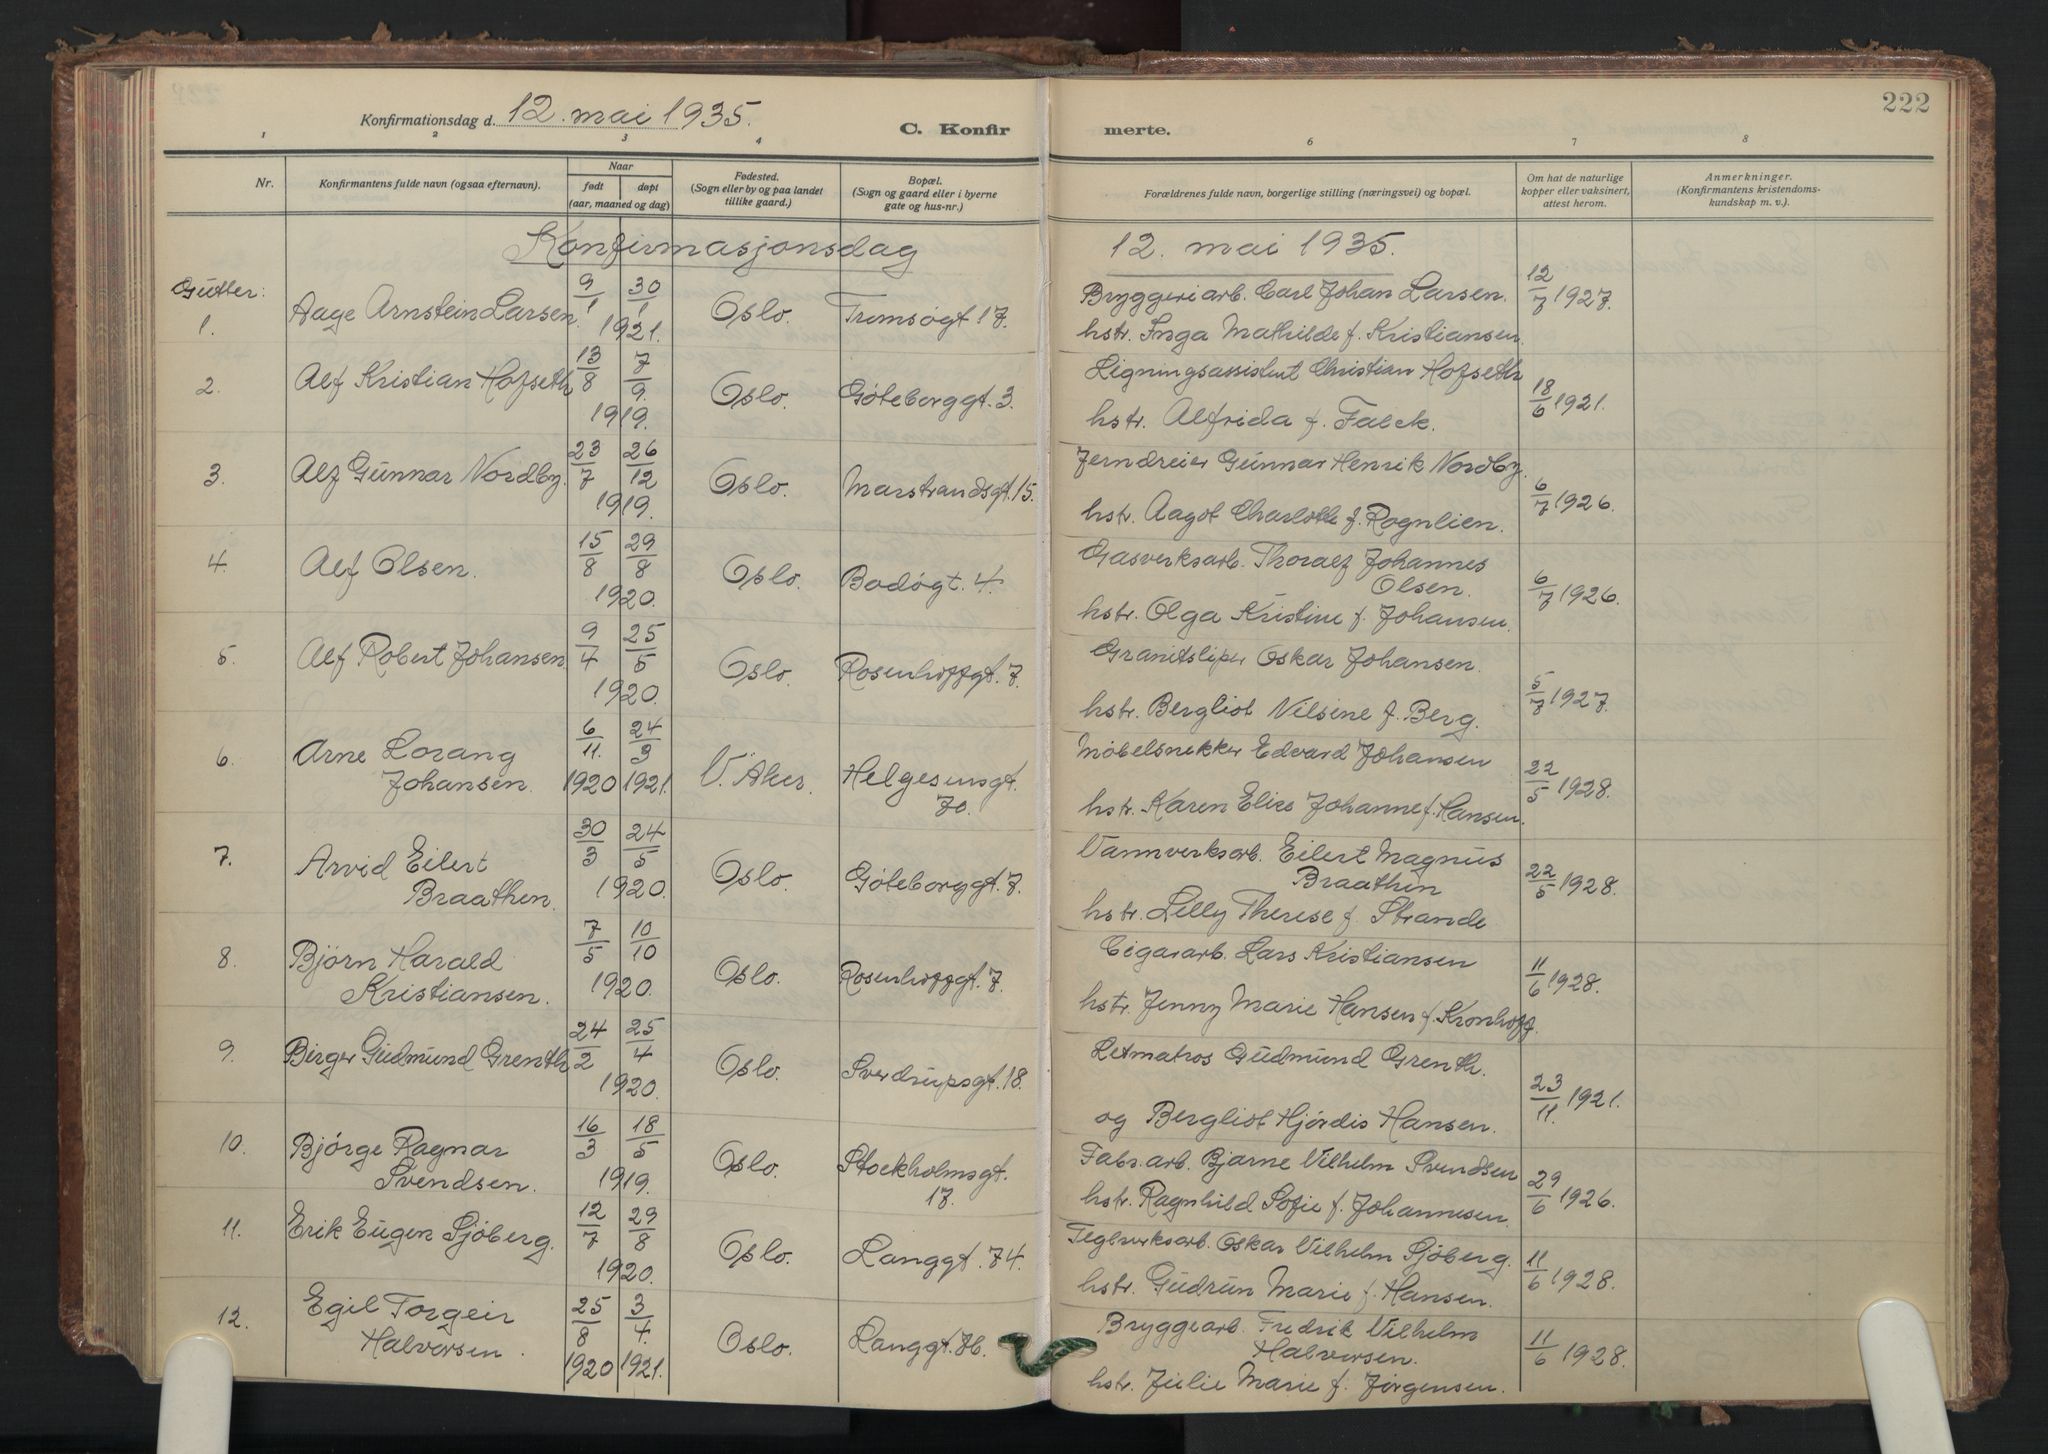 222
Konfirmationsdag d. 12. mai 1935.
C. Konfirmerte.
1 2 3 4 5 6 7 8
Nr.
Konfirmantens fulde navn (ogsaa efternavn).
Naar
født døpt
(aar, maaned og dag)
Fødested.
(Sogn eller by og paa landet
tillike gaard.)
Bopæl.
(Sogn og gaard eller i byerne
gate og hus-nr.)
Forældrenes fulde navn, borgerlige stilling (næringsvei) og bopæl.
Om hat de naturlige
kopper eller vaksinert,
attest herom.
Anmerkninger.
(Konfirmantens kristendoms-
kundskap m. v.).
Konfirmasjonsdag 12. mai 1935.
Gutter:
1. Aage Arnstein Larsen 9/1 30/1 1921. Oslo. Tromsøgt 17. Bryggeriarb. Carl Johan Larsen. 12/7 1927.
hstr. Inga Mathilde f. Kristiansen.
2. Alf Kristian Hofseth 13/8 7/9. 1919. Oslo. Göteborggt. 3. Ligningsassistent Christian Hofseth 18/6 1921.
hstr. Alfrida f. Falck.
3. Alf Gunnar Nordby. 23/7 26/12 1919. Oslo. Marstrandsgt. 15. Jerndreier Gunnar Henrik Nordby. 6/7 1926.
hstr. Aagot Charlotte f. Rognlien.
4. Alf Olsen. 15/8 29/8 1920. Oslo. Bodøgt. 4. Gasverksarb. Thoralf Johannes
Olsen. 6/7 1926.
hstr. Olga Kristine f. Johansen.
5. Alf Robert Johansen 9/4 25/5 1920. Oslo. Rosenhoffgt. 7. Granitsliper Oskar Johansen. 5/7 1927.
hstr. Bergliot Nilsine f. Berg.
6. Arne Lorang
Johansen. 6/11. 1920 24/3 1921. V. Aker. Helgesensgt.
70. Møbelsnekker Edvard Johansen 22/5 1928.
hstr. Karen Elise Johanne f. Hansen.
7. Arvid Eilert
Braathen. 30/3 24/5 1920. Oslo. Göteborggt. 7. Vannverksarb. Eilert Magnus
Braathen 22/5 1928.
hstr. Lilly Therese f. Strande
8. Bjørn Harald
Kristiansen. 7/5 10/10 1920. Oslo. Rosenhoffgt. 7. Cigararb. Lars Kristiansen 11/6 1928.
hstr. Jenny Marie Hansen f. Kronhoff.
9. Birger Gudmund Grenth 24/2 25/4 1920. Oslo. Sverdrupsgt. 18. Letmatros Gudmund Grenth. 23/11. 1921.
og Bergliot Hjørdis Hansen.
10. Bjørge Ragnar
Svendsen. 16/3 18/5 1919. Oslo. Stockholmsgt.
17. Fabr.arb. Bjarne Vilhelm Svendsen 29/6 1926.
hstr. Ragnhild Sofie f. Johannesen.
11. Erik Eugen Sjöberg. 12/7 29/8 1920. Oslo. Langgt. 74. Teglverksarb. Oskar Vilhelm Sjöberg. 11/6 1928.
hstr. Gudrun Marie f. Hansen.
12. Egil Torgeir
Halvorsen. 25/8 1920 3/4. 1921. Oslo. Langgt. 76. Bryggearb. Fredrik Vilhelm
Halvorsen. 11/6 1928.
hstr. Julie Marie f. Jørgensen.